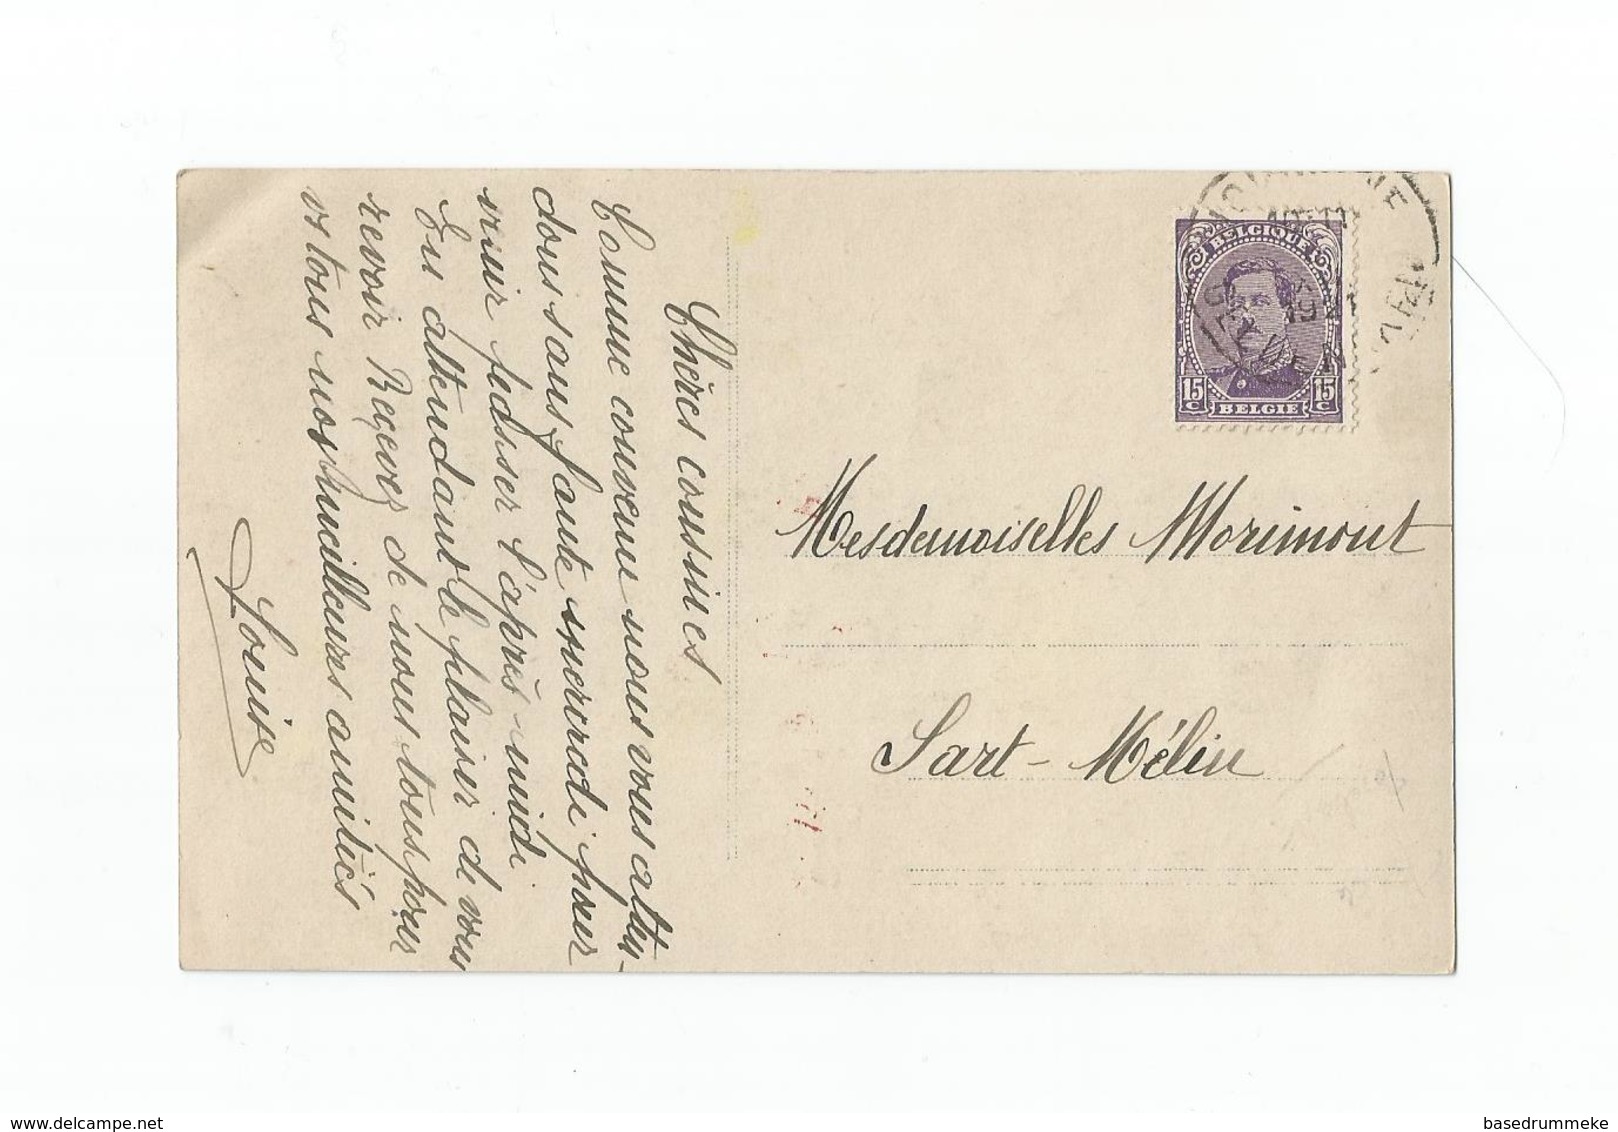 Chères cousines
Comme convenu nous vous atten-
dons sans faute mercredi pour
venir passer l'après-midi.
En attendant le plaisir de vous
revoir Recevez de nous tous pour
vs tous nos meilleures amitiés
Louise
BELGIQUE
15 C
15 C
BELGIE
Mesdemoiselles Morimont
Sart-Mélin
www.delcampe.net
basedrummeke